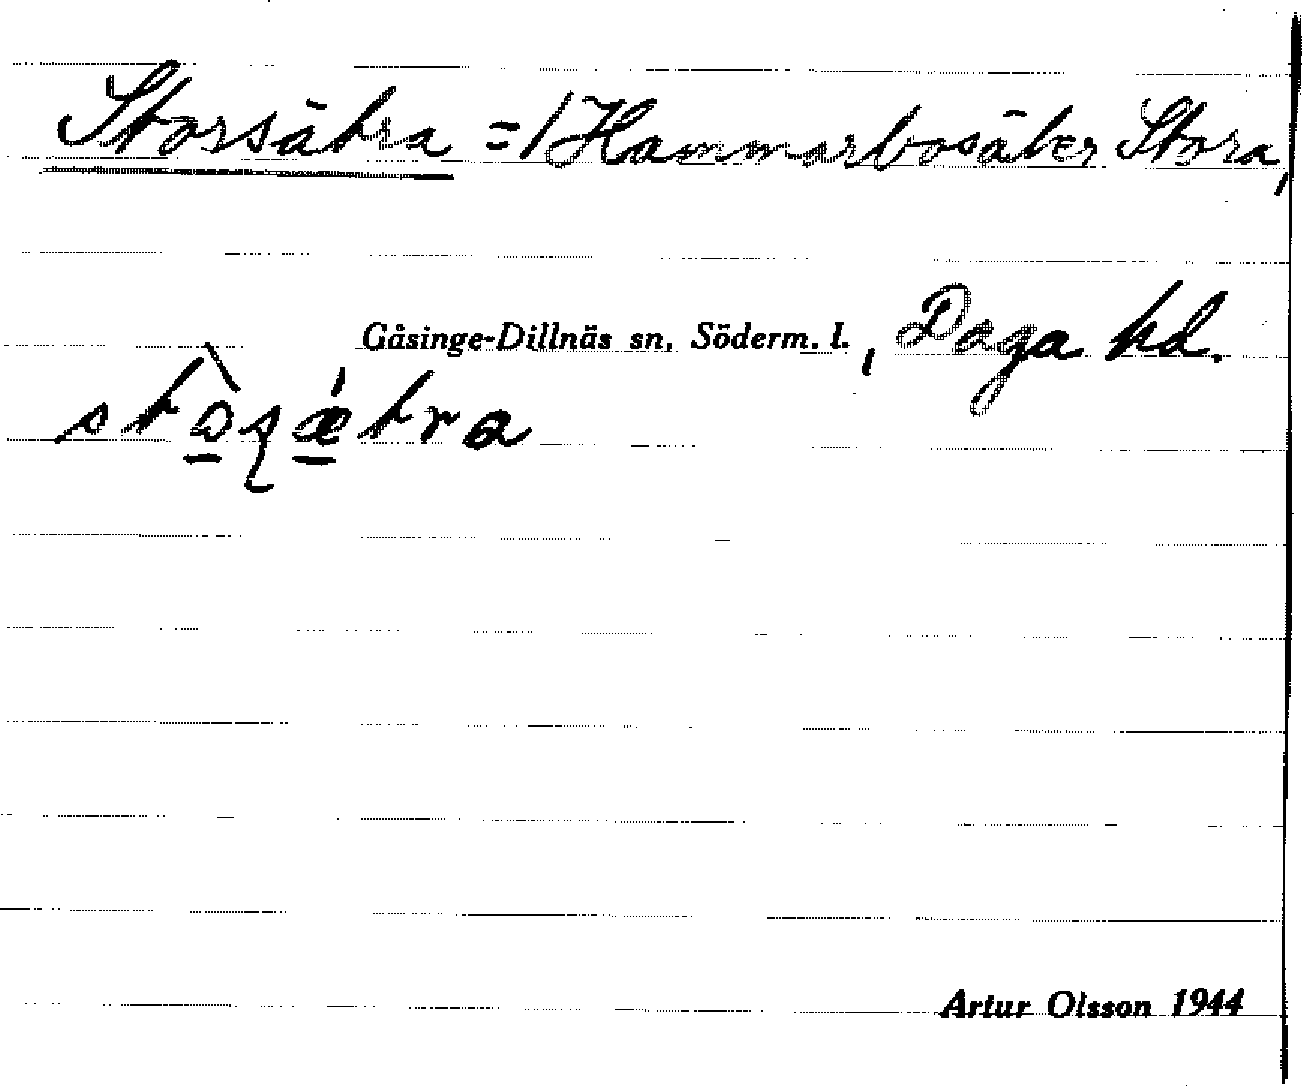 Storsätra = / Hammarbosäter Stora,
Gåsinge-Dillnäs sn, Söderm. l., Daga hd.
Artur Olsson 1944